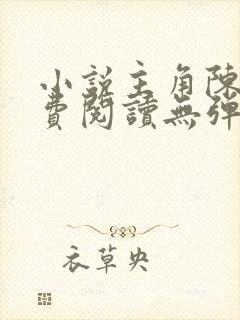 小說主角陳
費閱讀無彈
衣草央